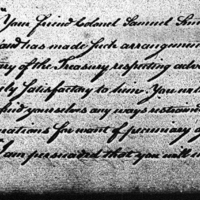 Your friend Colonel Samuel
and has made such arrangement
of the Treasury respecting
satisfactory to him. You
find yourselves any ways
for want of pecuniary
I am persuaded that you will